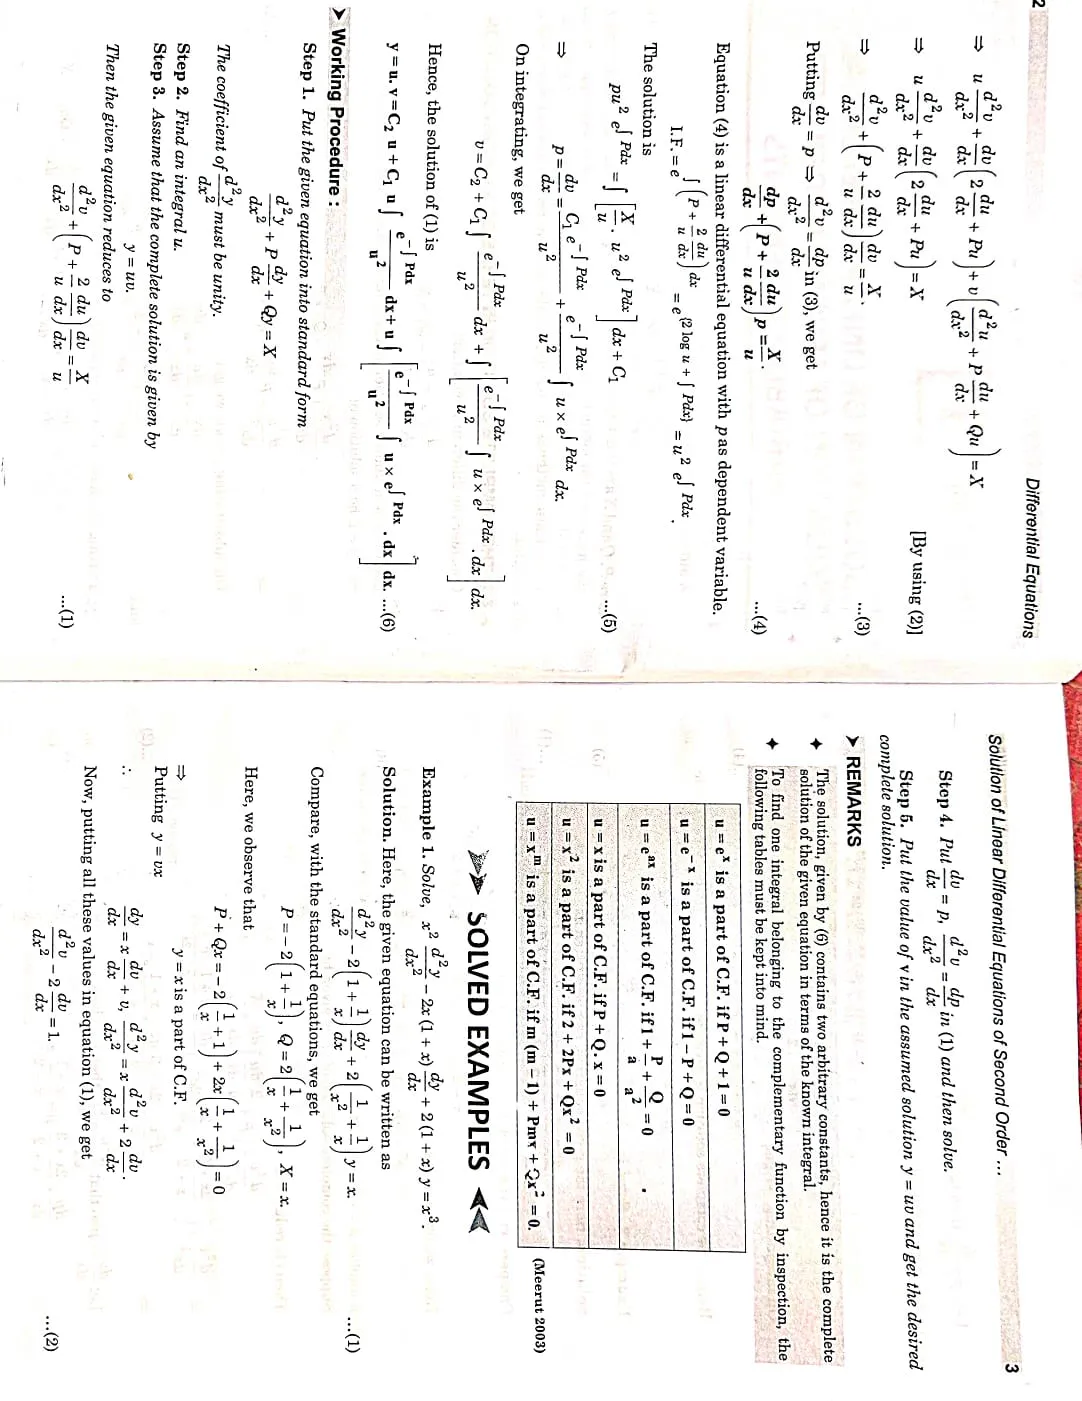 2 Differential Equations
⇒ u d²v/dx² + dv/dx (2 du/dx + Pu) + v (d²u/dx² + P du/dx + Qu) = X
⇒ u d²v/dx² + dv/dx (2 du/dx + Pu) = X [By using (2)]
⇒ d²v/dx² + (P + 2/u du/dx) dv/dx = X/u. ...(3)
Putting dv/dx = p ⇒ d²v/dx² = dp/dx in (3), we get
dp/dx + (P + 2/u du/dx) p = X/u. ...(4)
Equation (4) is a linear differential equation with p as dependent variable.
I.F. = e^∫(P + 2/u du/dx) dx = e^{2 log u + ∫ Pdx} = u² e^∫ Pdx .
The solution is
pu² e^∫ Pdx = ∫ [X/u . u² e^∫ Pdx] dx + C₁ ...(5)
⇒ p = dv/dx = C₁ e^-∫ Pdx / u² + e^-∫ Pdx / u² ∫ u × e^∫ Pdx dx.
On integrating, we get
v = C₂ + C₁ ∫ e^-∫ Pdx / u² dx + ∫ [e^-∫ Pdx / u² ∫ u × e^∫ Pdx . dx] dx.
Hence, the solution of (1) is
y = u. v = C₂ u + C₁ u ∫ e^-∫ Pdx / u² dx + u ∫ [e^-∫ Pdx / u² ∫ u × e^∫ Pdx . dx] dx. ...(6)
➤ Working Procedure :
Step 1. Put the given equation into standard form
d²y/dx² + P dy/dx + Qy = X
The coefficient of d²y/dx² must be unity.
Step 2. Find an integral u.
Step 3. Assume that the complete solution is given by
y = uv.
Then the given equation reduces to
d²v/dx² + (P + 2/u du/dx) dv/dx = X/u ...(1)
Solution of Linear Differential Equations of Second Order ... 3
Step 4. Put dv/dx = p, d²v/dx² = dp/dx in (1) and then solve.
Step 5. Put the value of v in the assumed solution y = uv and get the desired
complete solution.
➤ REMARKS
✦ The solution, given by (6) contains two arbitrary constants, hence it is the complete
solution of the given equation in terms of the known integral.
✦ To find one integral belonging to the complementary function by inspection, the
following tables must be kept into mind.
u = eˣ is a part of C.F. if P + Q + 1 = 0
u = e⁻ˣ is a part of C.F. if 1 – P + Q = 0
u = eᵃˣ is a part of C.F. if 1 + P/a + Q/a² = 0
u = x is a part of C.F. if P + Q. x = 0
u = x² is a part of C.F. if 2 + 2Px + Qx² = 0
u = xᵐ is a part of C.F. if m (m – 1) + Pmx + Qx² = 0. (Meerut 2003)
SOLVED EXAMPLES
Example 1. Solve, x² d²y/dx² – 2x (1 + x) dy/dx + 2 (1 + x) y = x³.
Solution. Here, the given equation can be written as
d²y/dx² – 2 (1 + 1/x) dy/dx + 2 (1/x² + 1/x) y = x. ...(1)
Compare, with the standard equations, we get
P = – 2 (1 + 1/x), Q = 2 (1/x + 1/x²), X = x.
Here, we observe that
P + Qx = – 2 (1/x + 1) + 2x (1/x + 1/x²) = 0
⇒ y = x is a part of C.F.
Putting y = vx
∴ dy/dx = x dv/dx + v, d²y/dx² = x d²v/dx² + 2 dv/dx .
Now, putting all these values in equation (1), we get
d²v/dx² – 2 dv/dx = 1. ...(2)